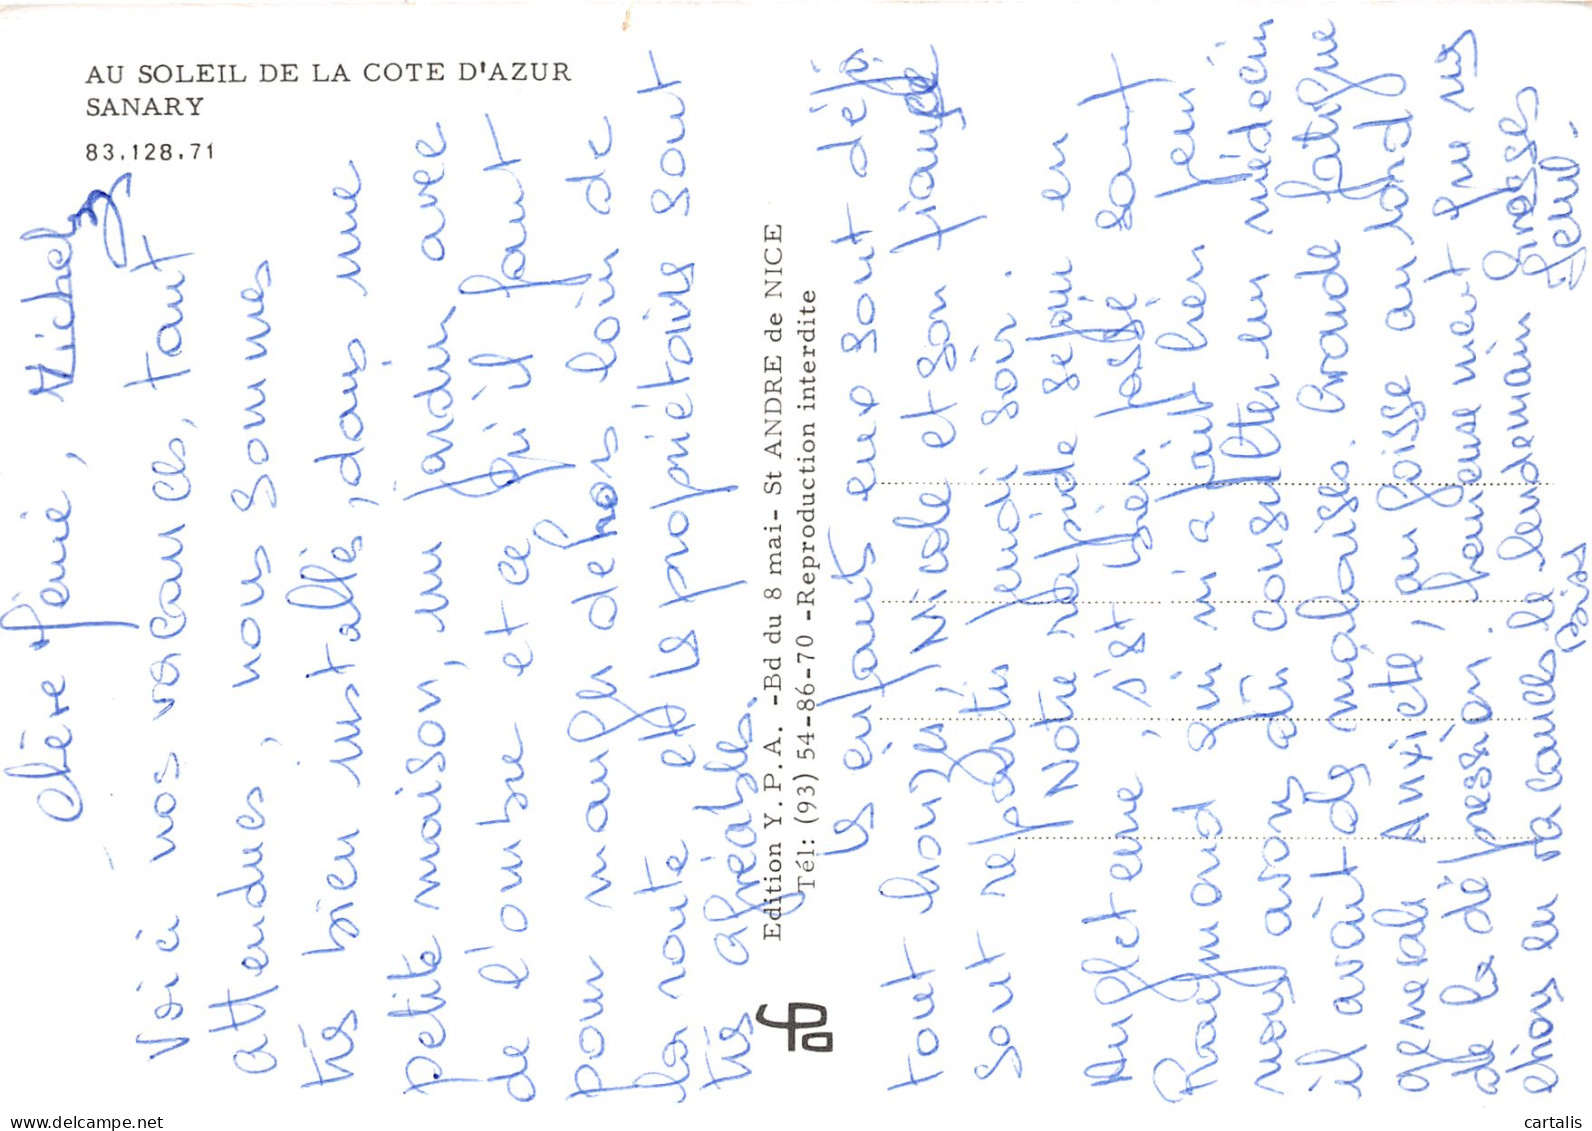 AU SOLEIL DE LA COTE D'AZUR
SANARY
83.128.71
Edition Y.P.A. -Bd du 8 mai- St ANDRE de NICE
Tél: (93) 54-86-70 -Reproduction interdite
Chère Mémie, Michel
Voici nos vacances, tant
attendues, nous sommes
très bien installés, dans une
petite maison, un jardin avec
de l'ombre et ce qu'il faut
pour manger dehors loin de
la route et les propriétaires sont
très agréables.
les enfants eux sont déjà
tout bronzés Nicole et son fiancé
sont repartis jeudi soir.
Notre rapide séjour en
Angleterre, s'est bien passé sauf
Raymond qui m'a fait bien peur
nous avons dû consulter un médecin
il avait des malaises. Grande fatigue
generale Anxiété, angoisse au fond
de la dépression. heureusement que ns
étions en vacances le lendemain Grosses
Bises
delcampe.net
cartalis